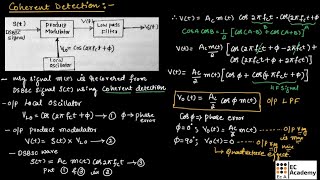 Coherent Detection :-
S(t)
DSBSC
signal
Product
Modulator
V(t)
Low pass
filter
Vo(t)
VLO = cos(2πfct+ϕ)
Local
Oscillator
- msg signal m(t) is recovered from
DSBSC signal S(t) using coherent detection
- o/p Local Oscillator
VLO = cos(2πfct+ϕ) → ①
phase
error
- o/p product modulator
V(t) = S(t) × VLO → ②
- DSBSC wave
S(t) = Ac m(t) cos2πfct → ③
Put ① & ③ in ②
∴ V(t) = Ac m(t) cos2πfct · cos(2πfct+ϕ)
cosA cosB = 1/2 [cos(A-B) + cos(A+B)]
V(t) = Ac m(t)/2 [cos(2πfct+ϕ-2πfct) +
cos(2πfct+ϕ+2πfct)]
V(t) = Ac/2 m(t) [cosϕ + cos(4πfct+ϕ)]
HF signal
Vo(t) = Ac/2 cosϕ m(t) → o/p LPF
cosϕ → phase error
ϕ=0°, Vo(t) = Ac/2 m(t) → o/p
ϕ=90°, Vo(t) = 0 → o/p
Quadrature effect.
EC
Academy